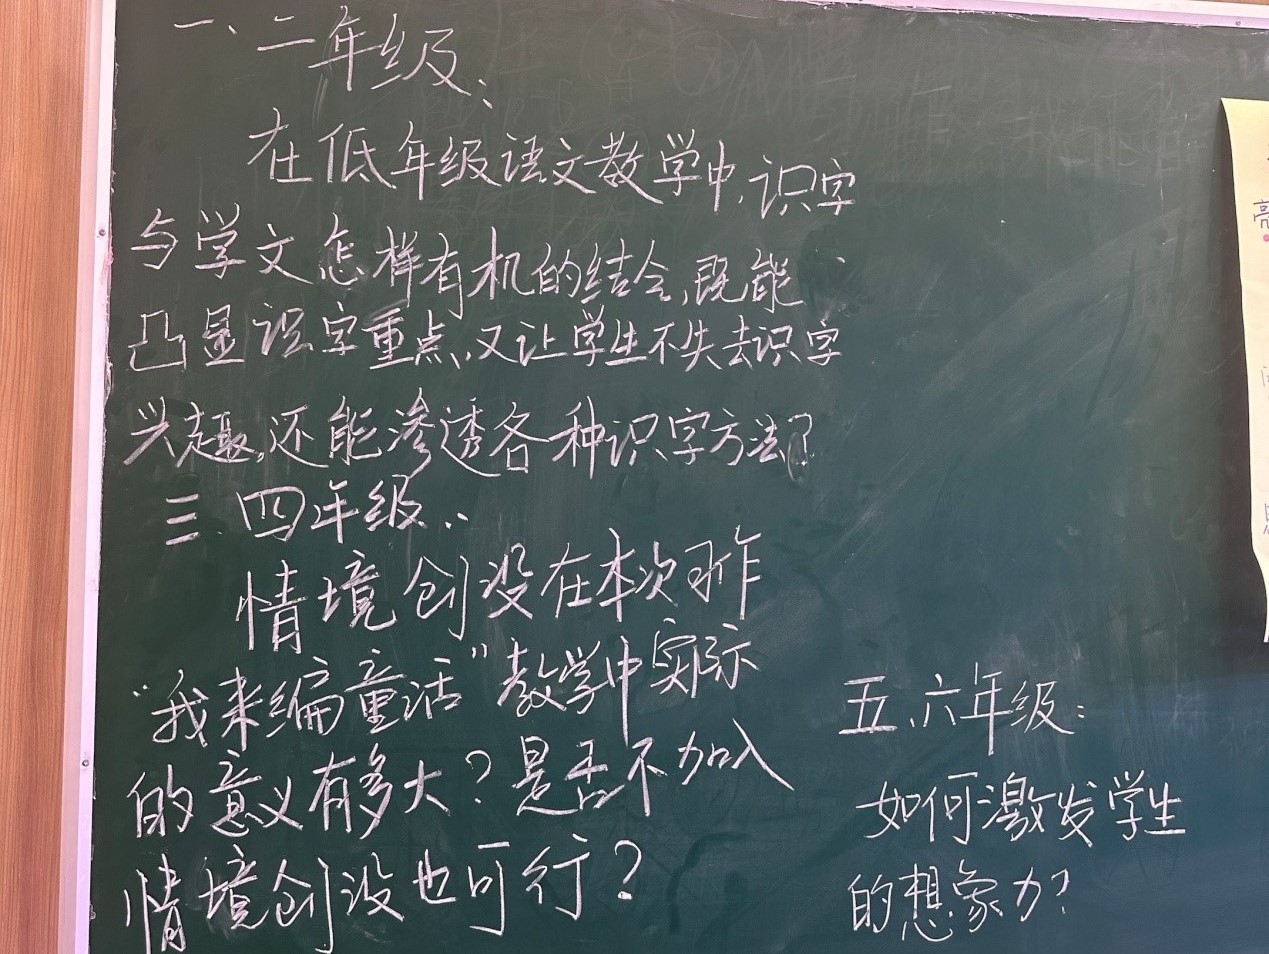 一、二年级：
在低年级语文教学中，识字
与学文怎样有机的结合，既能
凸显识字重点，又让学生不失去识字
兴趣，还能渗透各种识字方法？
三、四年级：
情境创设在本次习作
“我来编童话”教学中实际
的意义有多大？是否不加入
情境创设也可行？
五、六年级：
如何激发学生
的想象力？
亮